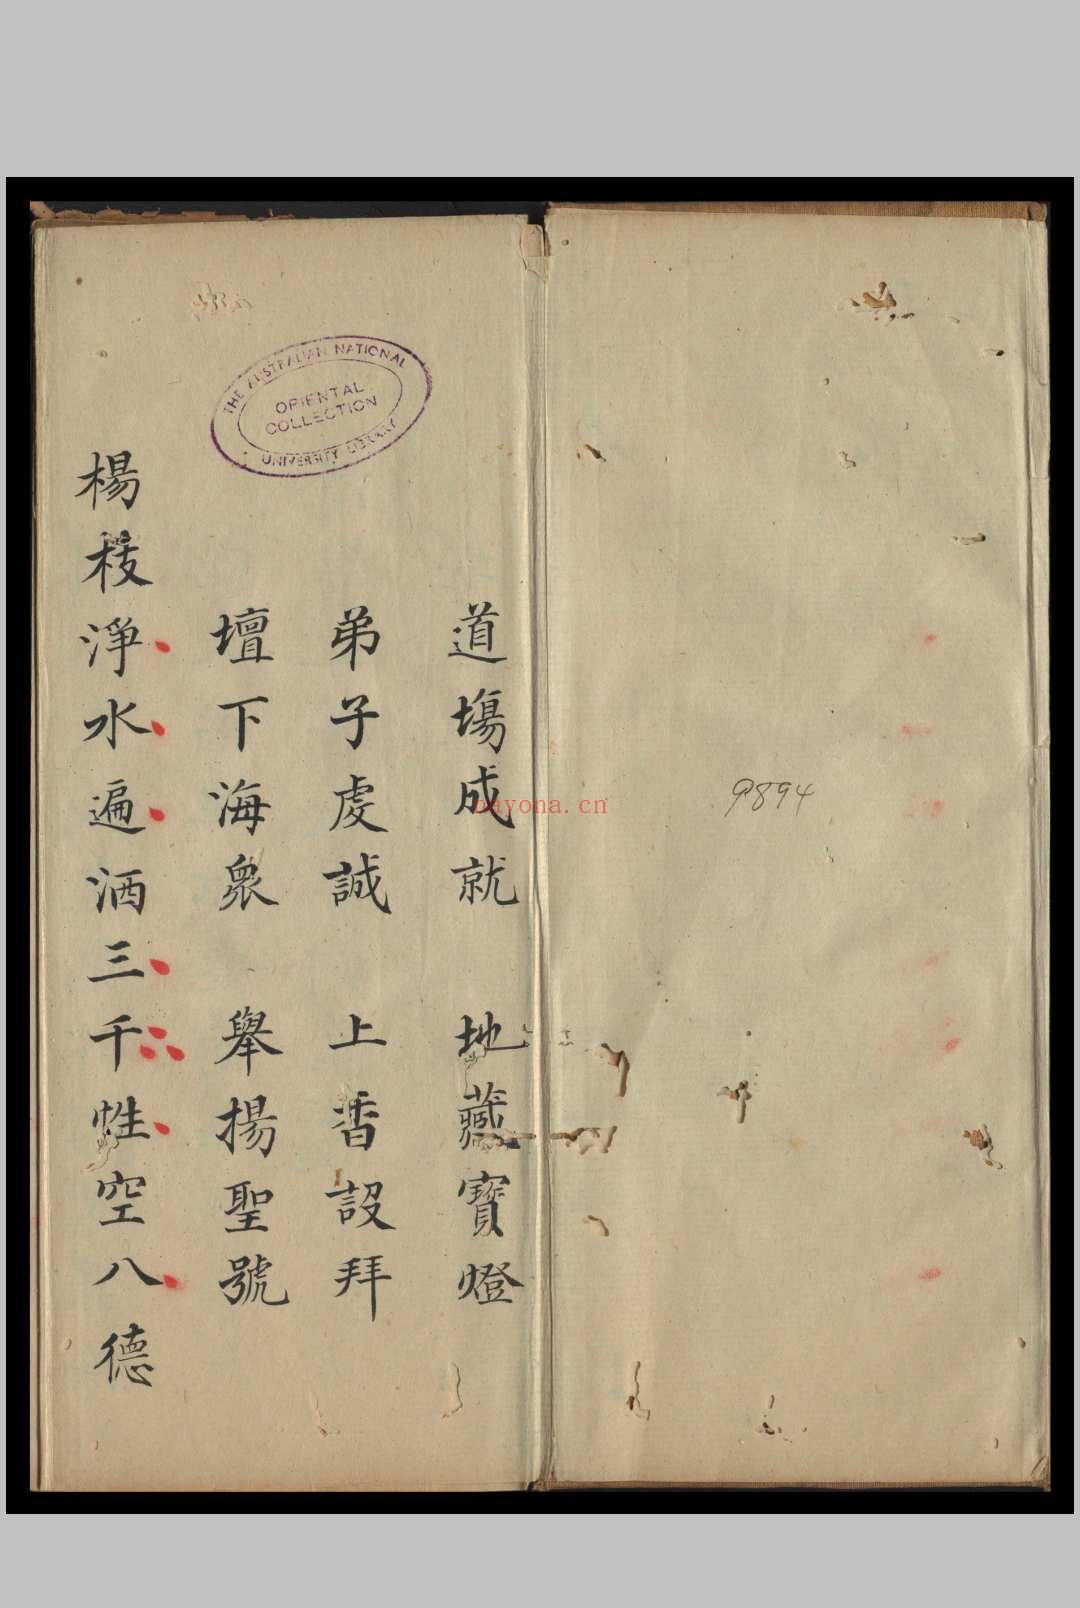 道塲成就 地藏寳燈
弟子虔誠 上香設拜
壇下海衆 舉揚聖號
楊枝淨水遍洒三千性空八德
THE AUSTRALIAN NATIONAL
ORIENTAL
COLLECTION
UNIVERSITY LIBRARY
9894
bayona.cn